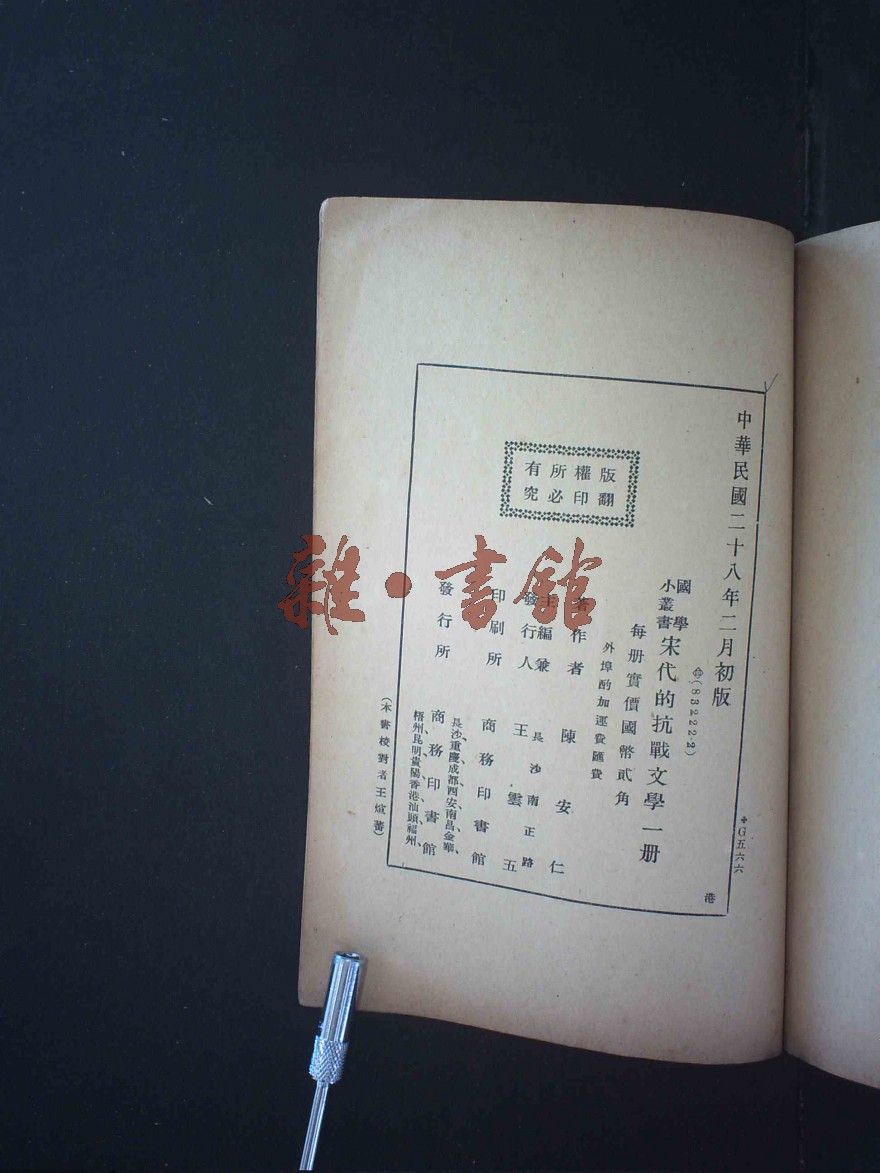 中華民國二十八年二月初版
✣G五六六
(83222·2)
國學小叢書 宋代的抗戰文學一册
每册實價國幣貳角
外埠酌加運費匯費
版權所有
翻印必究
著作者 陳安仁
主編兼發行人 王雲五
長沙南正路
印刷所 商務印書館
發行所 商務印書館
長沙、重慶、成都、西安、南昌、金華、
梧州、昆明、貴陽、香港、汕頭、福州、
(本書校對者王煊蕃)
港
雜·書館